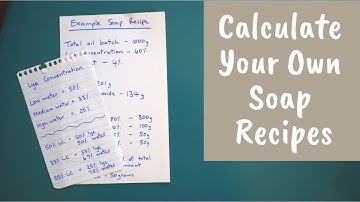 Example Soap Recipe
Total oil batch - 1000g
concentration - 40%
- 4%
201g
oxide - 134g
80% - 800g
10% - 100g
5% - 50g
5% - 50g
of total
amount
50grams
Lye Concentration
Low water = 50%
Medium water = 33%
High water = 25%
50% LC = 50% lye
50% water
33% LC = 33% lye
67% water
25% LC = 25% lye
75% water
Calculate
Your Own
Soap
Recipes